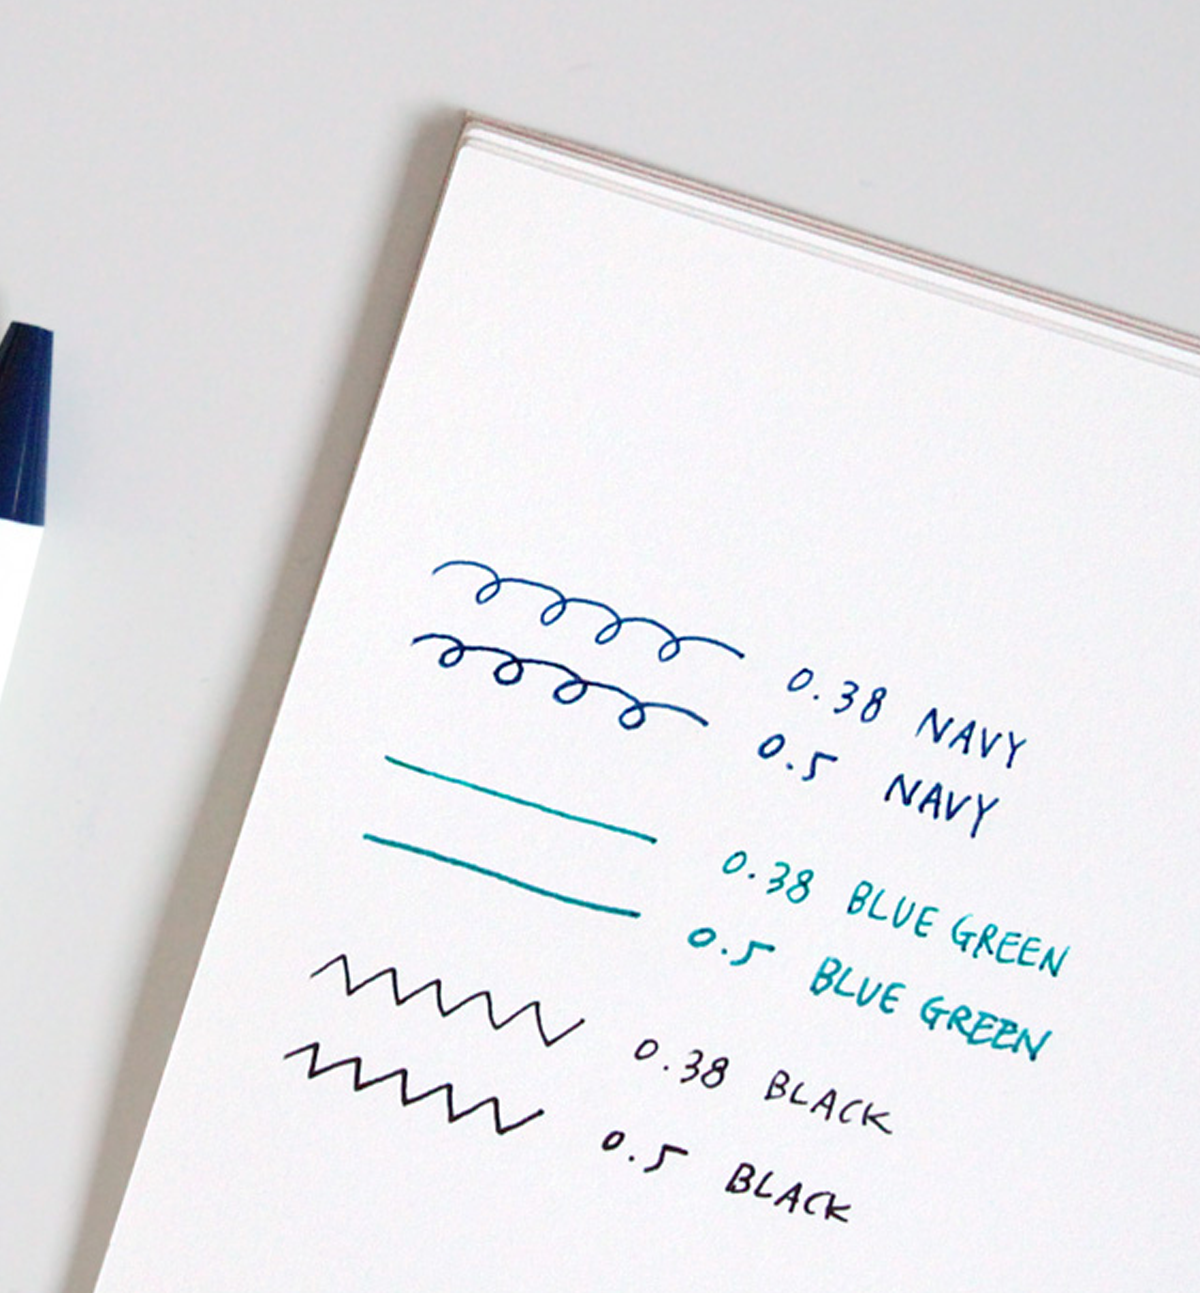 0.38 NAVY
0.5 NAVY
0.38 BLUE GREEN
0.5 BLUE GREEN
0.38 BLACK
0.5 BLACK